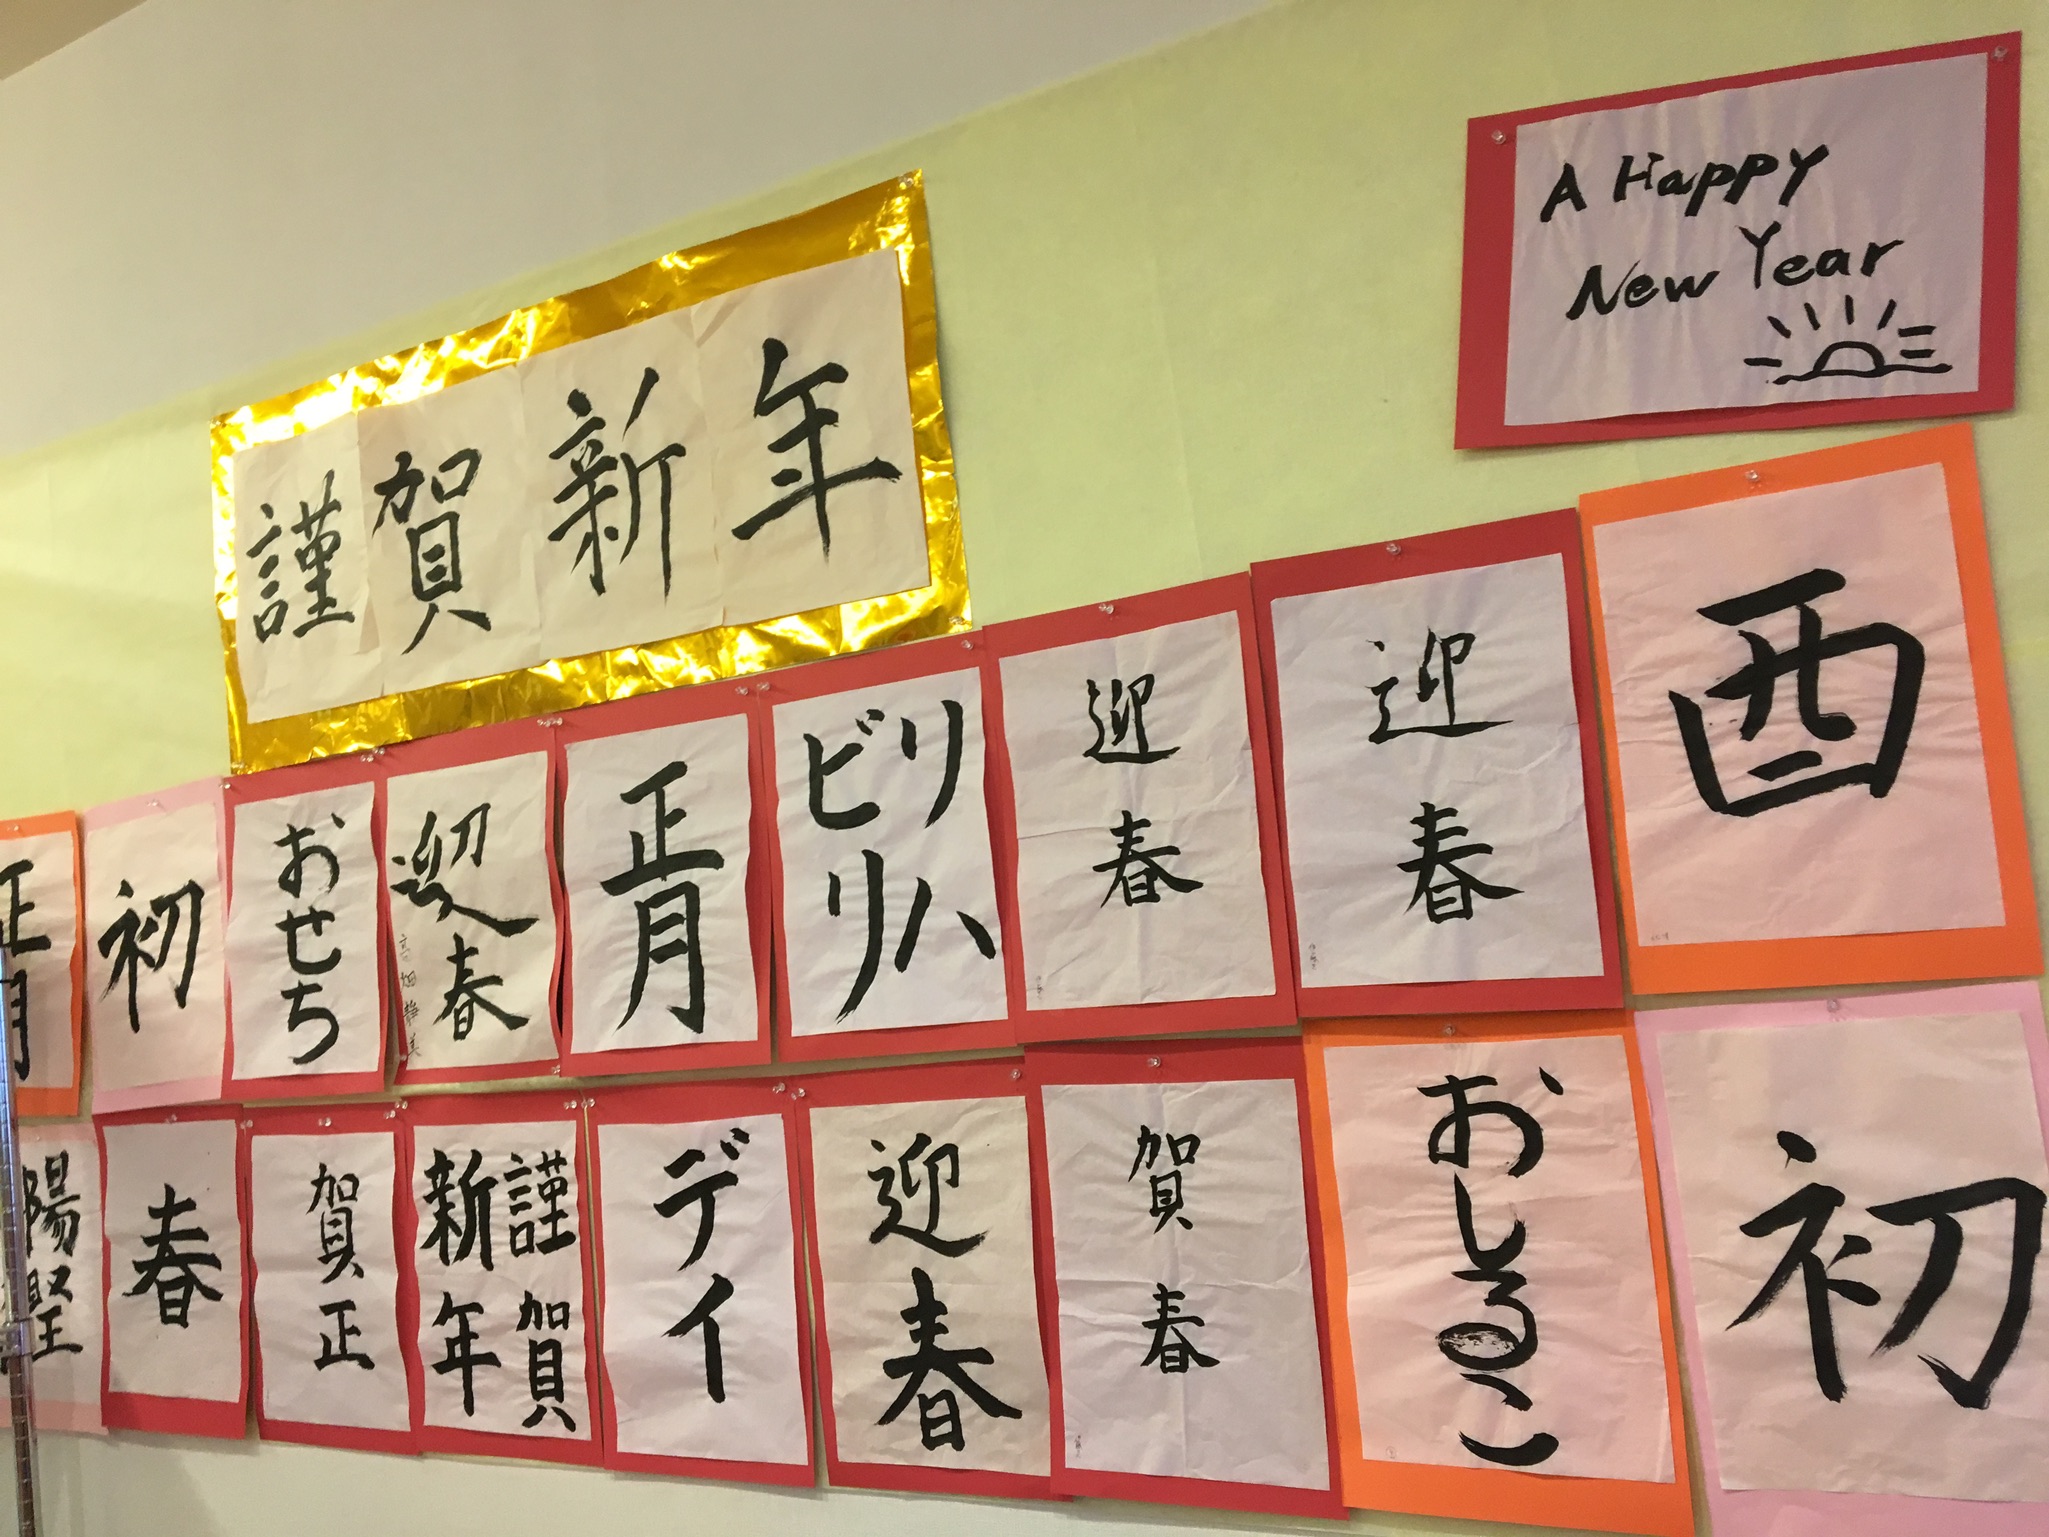 謹賀新年
A Happy
New Year
正月
初
おせち
迎春
正月
リハ
ビリ
迎春
迎春
酉
春
賀正
謹賀
新年
デイ
迎春
賀春
おしるこ
初